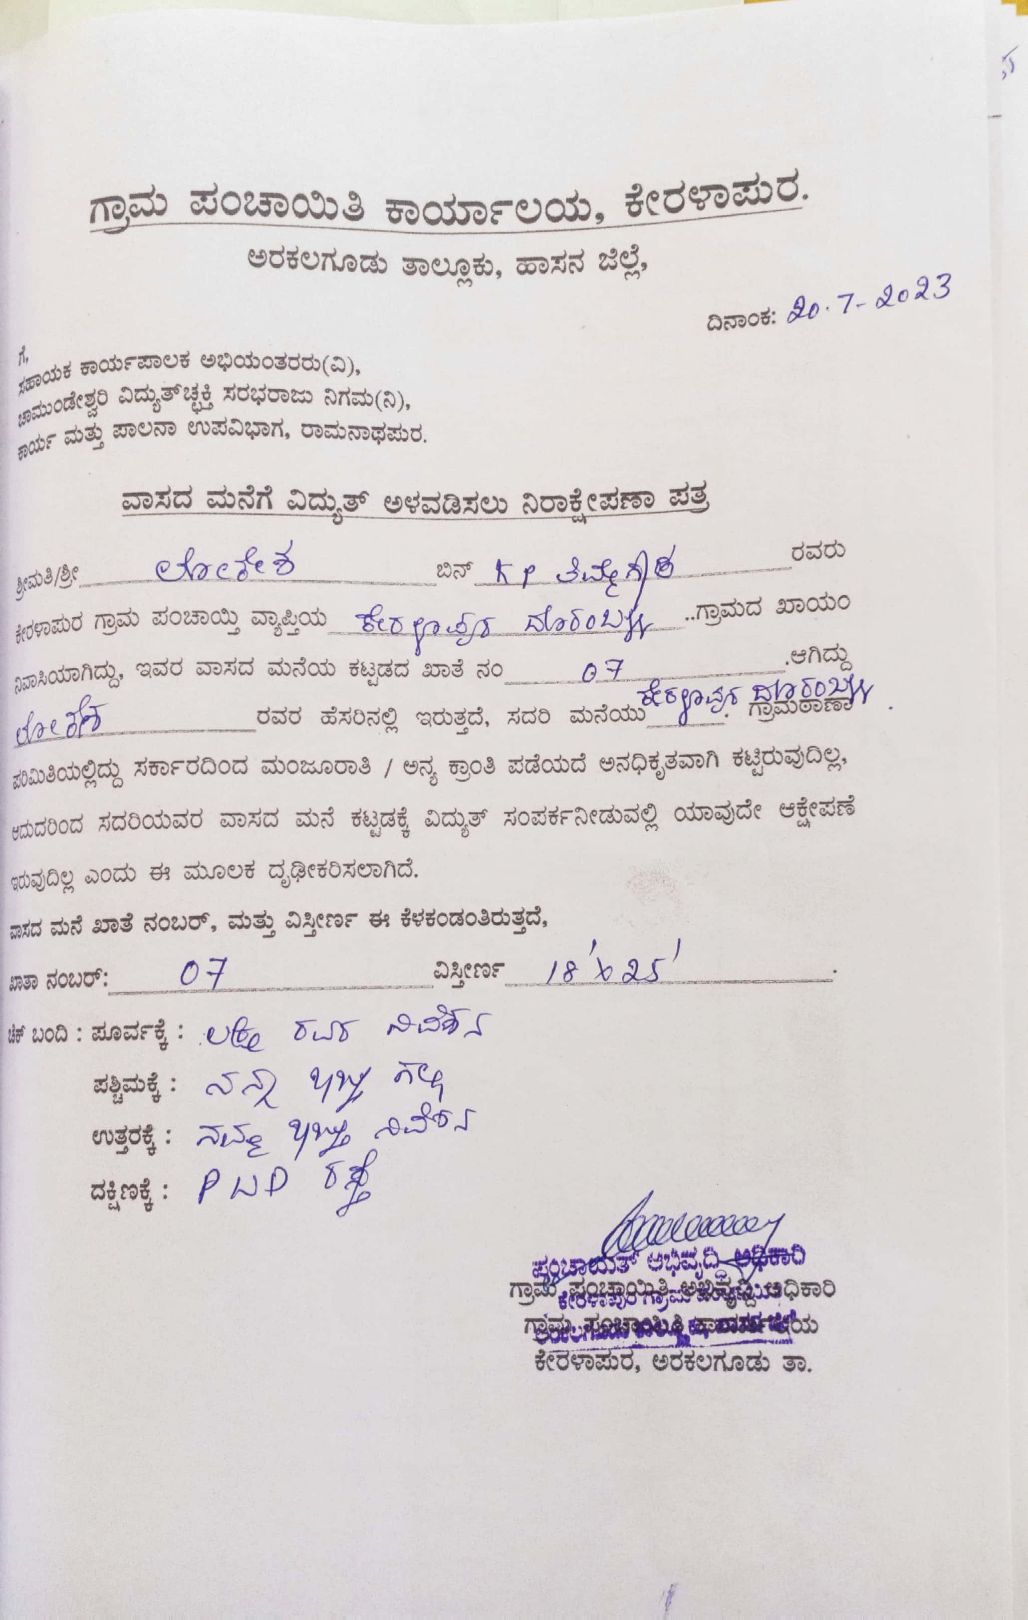 ಗ್ರಾಮ ಪಂಚಾಯಿತಿ ಕಾರ್ಯಾಲಯ, ಕೇರಳಾಪುರ.
ಅರಕಲಗೂಡು ತಾಲ್ಲೂಕು, ಹಾಸನ ಜಿಲ್ಲೆ,
ದಿನಾಂಕ: 20-7-2023
ಗೆ,
ಸಹಾಯಕ ಕಾರ್ಯಪಾಲಕ ಅಭಿಯಂತರರು(ವಿ),
ಚಾಮುಂಡೇಶ್ವರಿ ವಿದ್ಯುತ್‌ಚ್ಛಕ್ತಿ ಸರಭರಾಜು ನಿಗಮ(ನಿ),
ಕಾರ್ಯ ಮತ್ತು ಪಾಲನಾ ಉಪವಿಭಾಗ, ರಾಮನಾಥಪುರ.
ವಾಸದ ಮನೆಗೆ ವಿದ್ಯುತ್ ಅಳವಡಿಸಲು ನಿರಾಕ್ಷೇಪಣಾ ಪತ್ರ
ಶ್ರೀಮತಿ/ಶ್ರೀ ಲೋಕೇಶ ಬಿನ್ KP ತಿಮ್ಮೇಗೌಡ ರವರು
ಕೇರಳಾಪುರ ಗ್ರಾಮ ಪಂಚಾಯ್ತಿ ವ್ಯಾಪ್ತಿಯ ಕೇರಳಾಪುರ ..ಗ್ರಾಮದ ಖಾಯಂ
ನಿವಾಸಿಯಾಗಿದ್ದು, ಇವರ ವಾಸದ ಮನೆಯ ಕಟ್ಟಡದ ಖಾತೆ ನಂ 07 .ಆಗಿದ್ದು
ಲೋಕೇಶ ರವರ ಹೆಸರಿನಲ್ಲಿ ಇರುತ್ತದೆ, ಸದರಿ ಮನೆಯು ಕೇರಳಾಪುರ ಗ್ರಾಮಠಾಣಾ
ಪರಿಮಿತಿಯಲ್ಲಿದ್ದು ಸರ್ಕಾರದಿಂದ ಮಂಜೂರಾತಿ / ಅನ್ಯ ಕ್ರಾಂತಿ ಪಡೆಯದೆ ಅನಧಿಕೃತವಾಗಿ ಕಟ್ಟಿರುವುದಿಲ್ಲ,
ಆದುದರಿಂದ ಸದರಿಯವರ ವಾಸದ ಮನೆ ಕಟ್ಟಡಕ್ಕೆ ವಿದ್ಯುತ್ ಸಂಪರ್ಕನೀಡುವಲ್ಲಿ ಯಾವುದೇ ಆಕ್ಷೇಪಣೆ
ಇರುವುದಿಲ್ಲ ಎಂದು ಈ ಮೂಲಕ ದೃಢೀಕರಿಸಲಾಗಿದೆ.
ವಾಸದ ಮನೆ ಖಾತೆ ನಂಬರ್, ಮತ್ತು ವಿಸ್ತೀರ್ಣ ಈ ಕೆಳಕಂಡಂತಿರುತ್ತದೆ,
ಖಾತಾ ನಂಬರ್: 07 ವಿಸ್ತೀರ್ಣ 18'x25' .
ಚೆಕ್ ಬಂದಿ : ಪೂರ್ವಕ್ಕೆ : ರವರ ನಿವೇಶನ
ಪಶ್ಚಿಮಕ್ಕೆ : ಗಲ್ಲಿ
ಉತ್ತರಕ್ಕೆ : ನಿವೇಶನ
ದಕ್ಷಿಣಕ್ಕೆ : PWD ರಸ್ತೆ
ಪಂಚಾಯತ್ ಅಭಿವೃದ್ಧಿ ಅಧಿಕಾರಿ
ಗ್ರಾಮ ಪಂಚಾಯಿತಿ ಅಭಿವೃದ್ಧಿ ಅಧಿಕಾರಿ
ಗ್ರಾಮ ಪಂಚಾಯಿತಿ ಕಾರ್ಯಾಲಯ
ಕೇರಳಾಪುರ, ಅರಕಲಗೂಡು ತಾ.